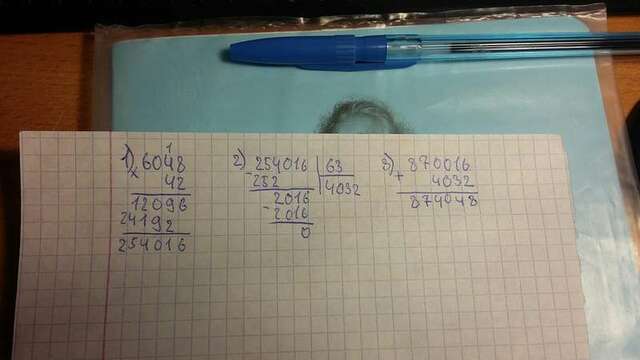 1) 6048
× 42
12096
24192
254016
2) 254016 | 63
- 252 | 4032
2016
- 2016
0
3) 870016
+ 4032
874048